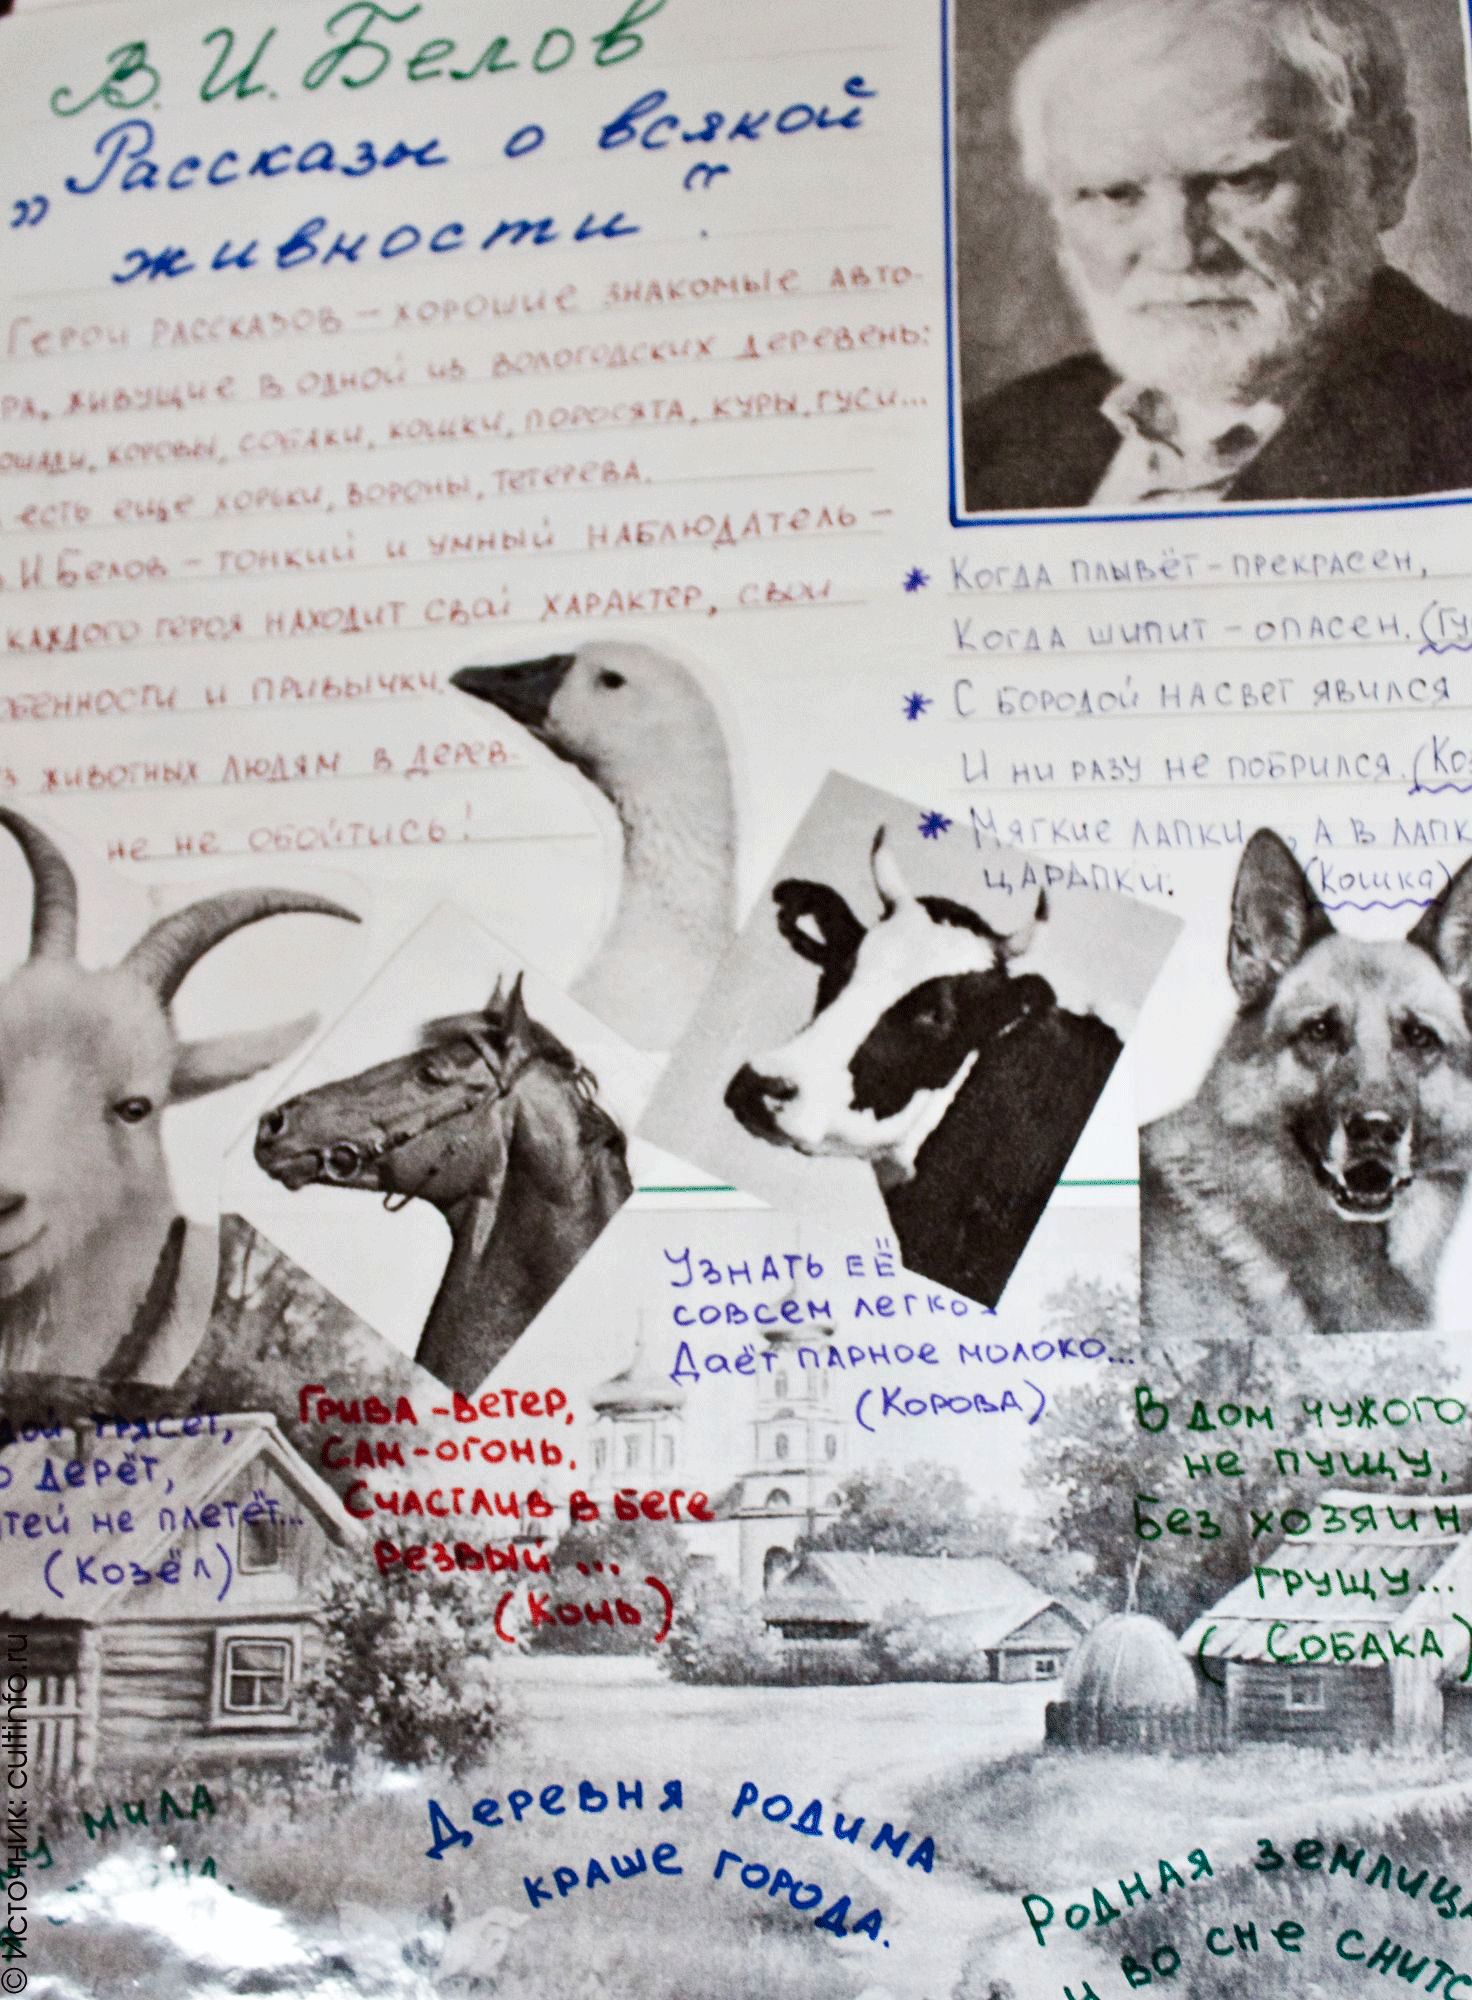 В. И. Белов
„Рассказы о всякой
живности“.
Герои рассказов – хорошие знакомые авто-
ра, живущие в одной из вологодских деревень:
коровы, собаки, кошки, поросята, куры, гуси...
есть еще хорьки, вороны, тетерева.
И Белов – тонкий и умный наблюдатель –
каждого героя находит свой характер, свои
и привычки.
животных людям в дерев-
не не обойтись!
* Когда плывёт – прекрасен,
Когда шипит – опасен. (Гу
* С бородой на свет явился
И ни разу не побрился. (Коз
* Мягкие лапки, а в лапк
царапки. (Кошка)
Узнать её
совсем легко
Даёт парное молоко...
(Корова)
трясёт,
дерёт,
тей не плетёт...
(Козёл)
Грива – ветер,
Сам – огонь.
Счастлив в беге
резвый ...
(Конь)
В дом чужого
не пущу,
Без хозяин
грущу...
(Собака)
мила
Деревня родима
краше города.
Родная землица
и во сне снитс
© Источник: cultinfo.ru